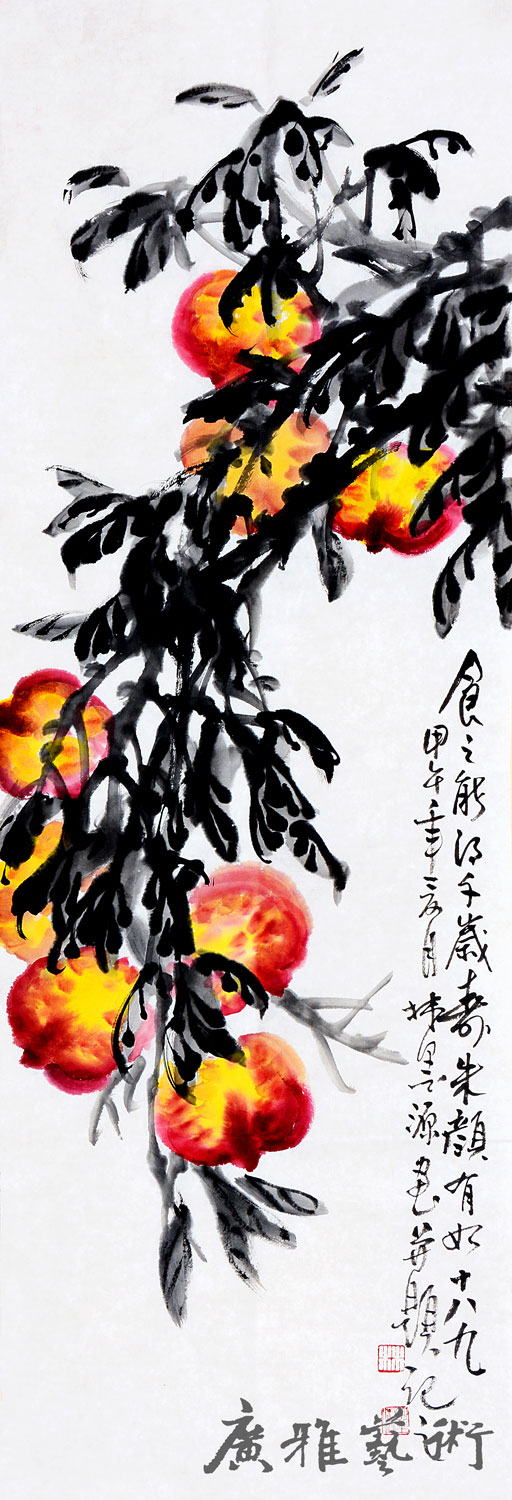 食之能得千歲壽朱顏有如十八九
甲午年三月林墨源畫并題記
廣雅藝術